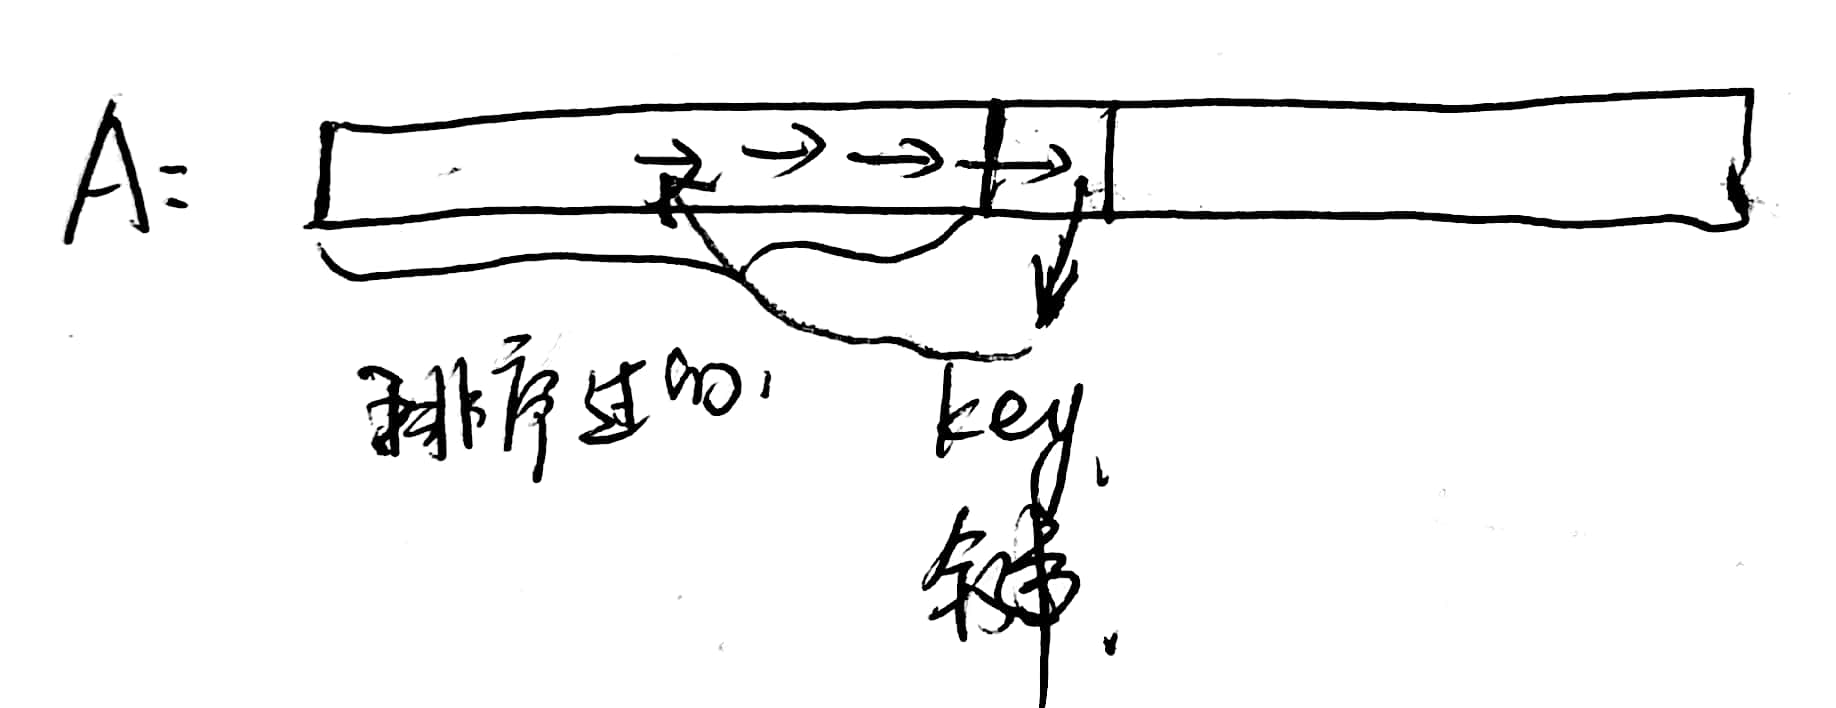 A=
排序过的,
key,
键.